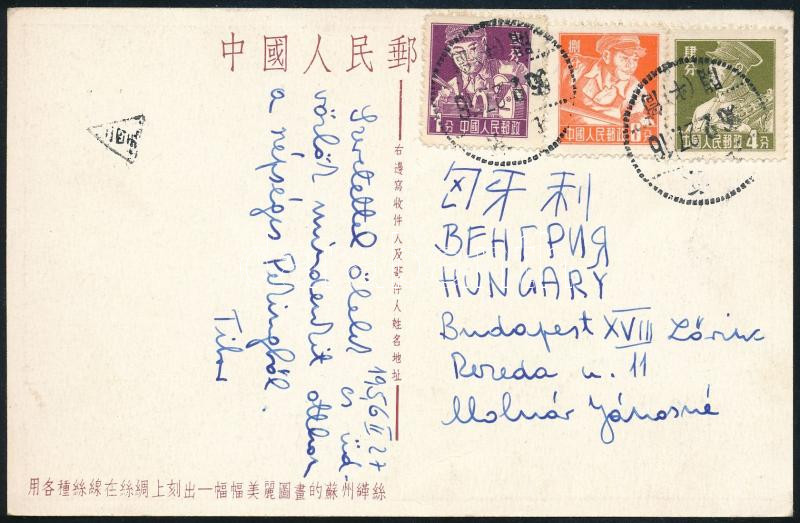 中國人民郵
右邊寫收件人及寄件人姓名地址
用各種絲線在絲綢上刻出一幅幅美麗圖畫的蘇州緙絲
1956 II 27
Szeretettel ölelek és üd-
vözlök mindenkit otthon
a népséges Pekingből.
Tibor
貳分
2分
中國人民郵政
捌分
中國人民郵政
8分
肆分
中國人民郵政
4分
匈牙利
ВЕНГРИЯ
HUNGARY
Budapest XVIII Lőrinc
Rezeda u. 11
Molnár Jánosné